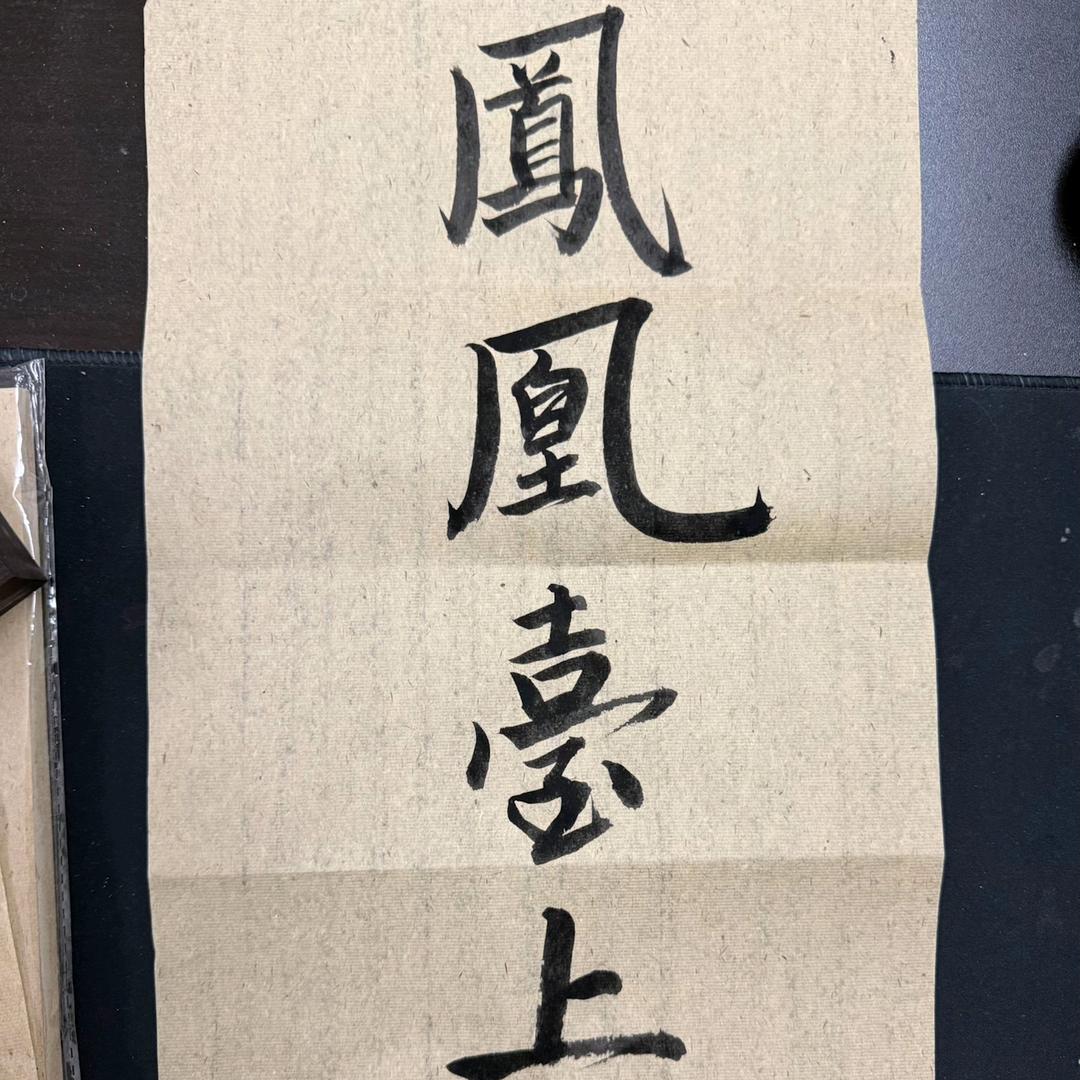 鳳凰臺上